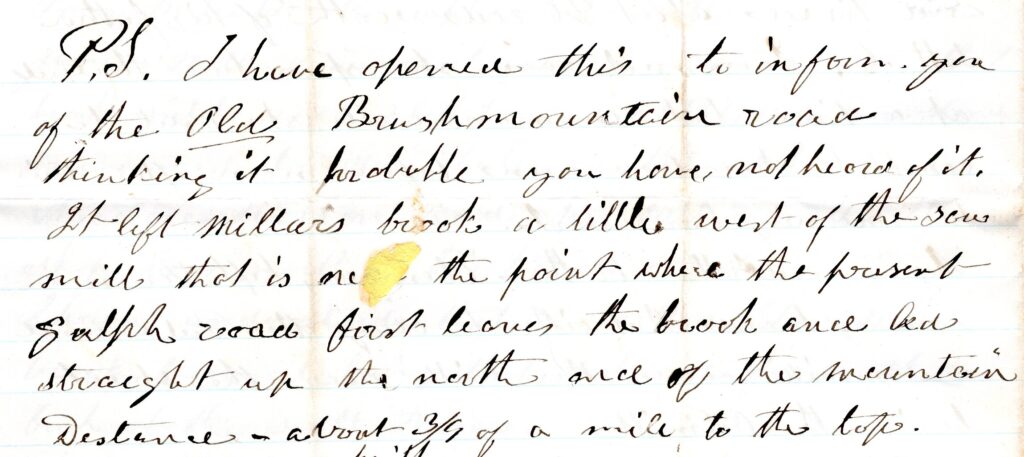 P.S. I have opened this to inform you
of the Old Brushmountain road
thinking it probable you have not heard of it.
It left Millars brook a little west of the saw
mill that is near the point where the present
Gulph road first leaves the brook and led
straight up the north side of the mountain
Distance - about 3/4 of a mile to the top.